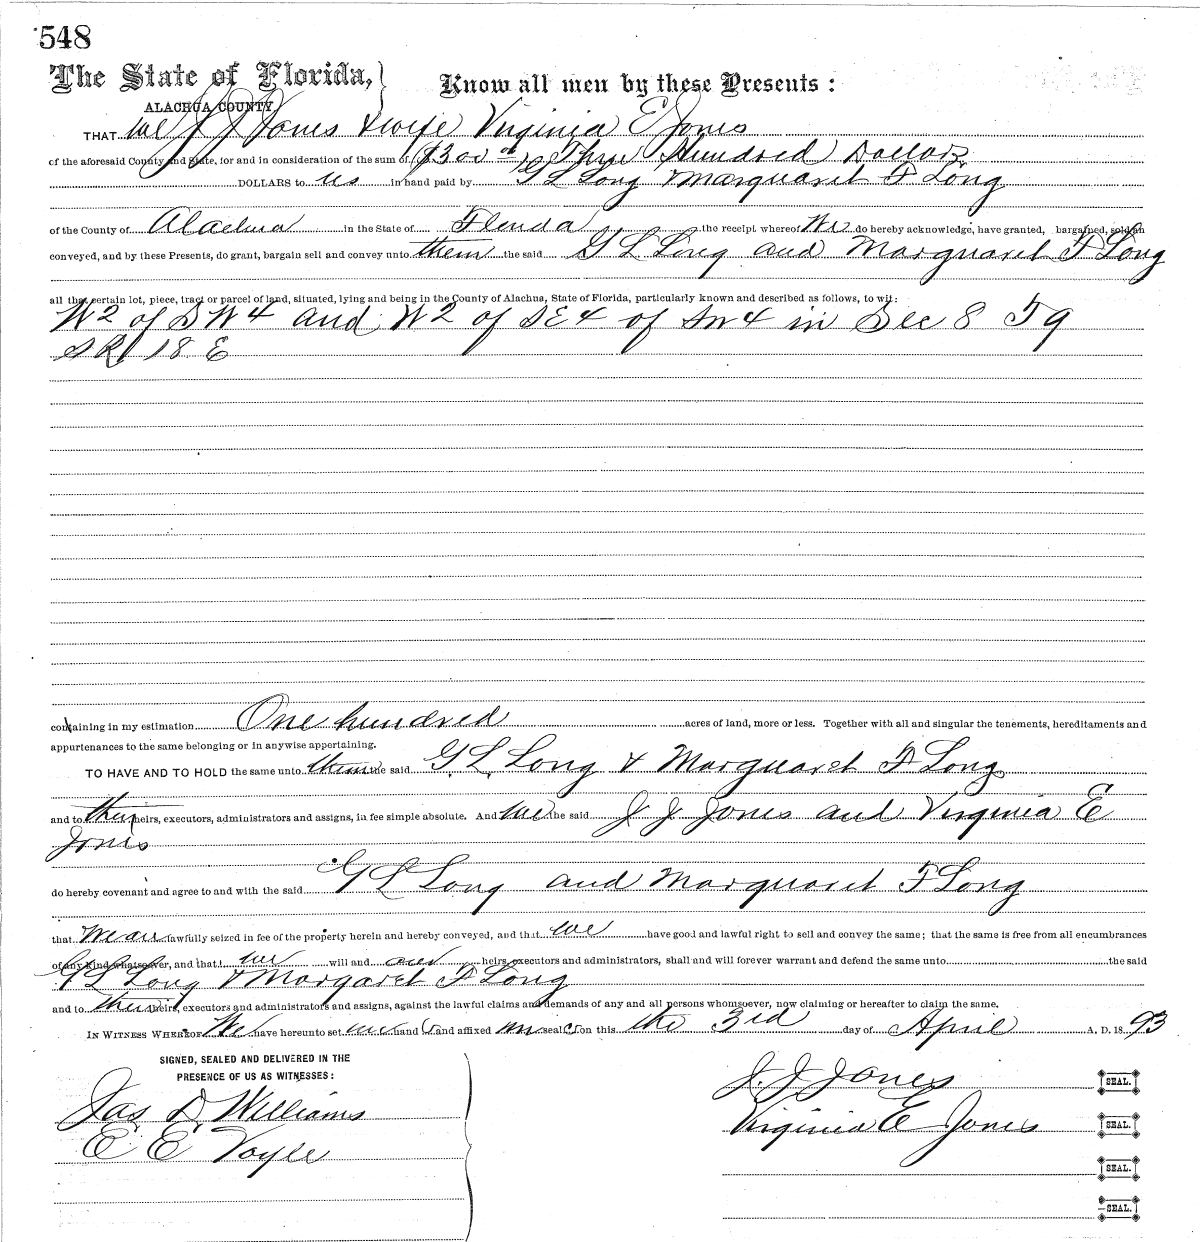 548
The State of Florida,} Know all men by these Presents:
ALACHUA COUNTY
THAT we J J Jones & wife Virginia E Jones
of the aforesaid County and State, for and in consideration of the sum of $300 Three Hundred Dollars
DOLLARS to us in hand paid by G L Long & Marguaret F Long
of the County of Alachua in the State of Florida the receipt whereof We do hereby acknowledge, have granted, bargained, sold an
conveyed, and by these Presents, do grant, bargain sell and convey unto them the said G L Long and Marguaret F Long
all that certain lot, piece, tract or parcel of land, situated, lying and being in the County of Alachua, State of Florida, particularly known and described as follows, to wit:
W2 of SW4 and W2 of SE4 of SW4 in Sec 8 T9
S R 18 E
containing in my estimation One hundred acres of land, more or less. Together with all and singular the tenements, hereditaments and
appurtenances to the same belonging or in anywise appertaining.
TO HAVE AND TO HOLD the same unto them the said G. L. Long & Marguaret F Long
and to their heirs, executors, administrators and assigns, in fee simple absolute. And we the said J J Jones and Virginia E
Jones
do hereby covenant and agree to and with the said G L Long and Marguaret F Long
that we are lawfully seized in fee of the property herein and hereby conveyed, and that we have good and lawful right to sell and convey the same; that the same is free from all encumbrances
of any kind whatsoever, and that we will and our heirs executors and administrators, shall and will forever warrant and defend the same unto the said
G L Long & Margaret F Long
and to their heirs, executors and administrators and assigns, against the lawful claims and demands of any and all persons whomsoever, now claiming or hereafter to claim the same.
IN WITNESS WHEREOF We have hereunto set our hands and affixed our seals on this the 3rd day of April A. D. 1893
SIGNED, SEALED AND DELIVERED IN THE
PRESENCE OF US AS WITNESSES:
J. J Jones SEAL.
Jas D Williams
Virginia E Jones SEAL.
E E Voyle
SEAL.
SEAL.